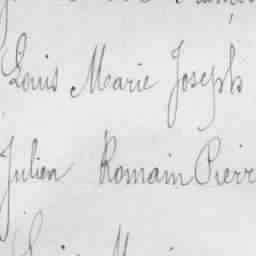 Louis Marie Joseph
Julien Romain Pierr